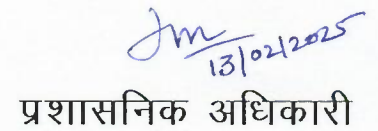 13/02/2025
प्रशासनिक अधिकारी